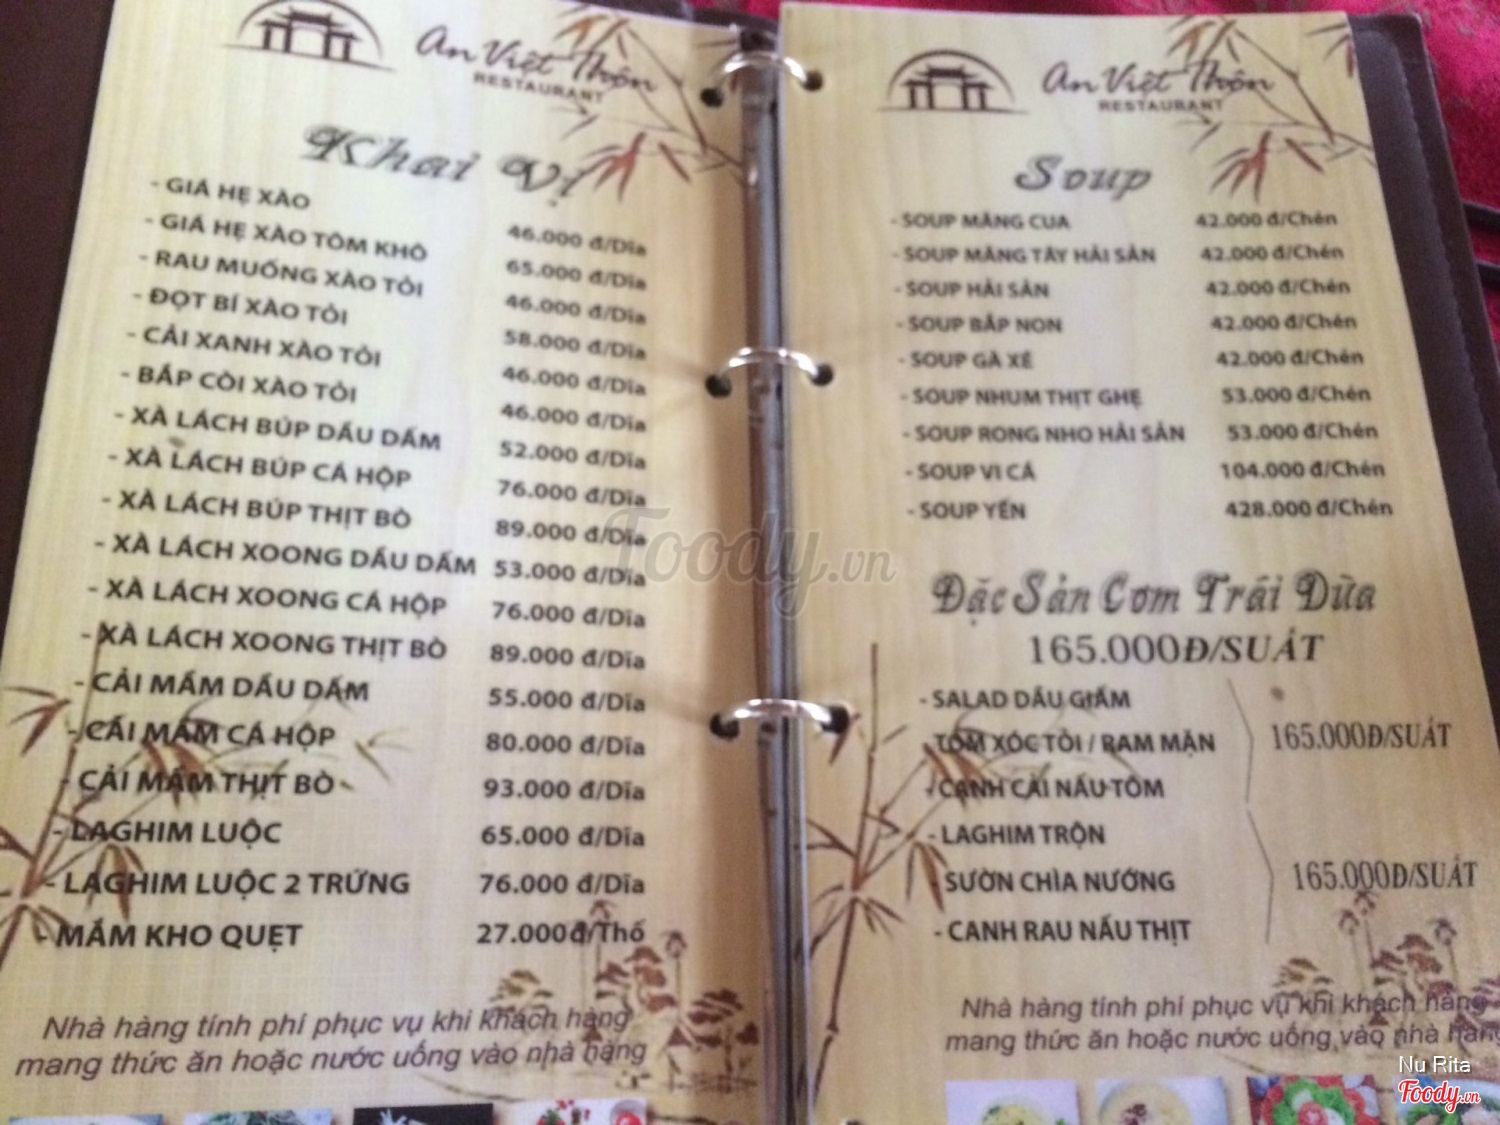 An Việt Thôn
RESTAURANT
Khai Vị
- GIÁ HẸ XÀO 46.000 đ/Dĩa
- GIÁ HẸ XÀO TÔM KHÔ 65.000 đ/Dĩa
- RAU MUỐNG XÀO TỎI 46.000 đ/Dĩa
- ĐỌT BÍ XÀO TỎI 58.000 đ/Dĩa
- CẢI XANH XÀO TỎI 46.000 đ/Dĩa
- BẮP CÒI XÀO TỎI 46.000 đ/Dĩa
- XÀ LÁCH BÚP DẦU DẤM 52.000 đ/Dĩa
- XÀ LÁCH BÚP CÁ HỘP 76.000 đ/Dĩa
- XÀ LÁCH BÚP THỊT BÒ 89.000 đ/Dĩa
- XÀ LÁCH XOONG DẦU DẤM 53.000 đ/Dĩa
- XÀ LÁCH XOONG CÁ HỘP 76.000 đ/Dĩa
- XÀ LÁCH XOONG THỊT BÒ 89.000 đ/Dĩa
- CẢI MẦM DẦU DẤM 55.000 đ/Dĩa
- CẢI MẦM CÁ HỘP 80.000 đ/Dĩa
- CẢI MẦM THỊT BÒ 93.000 đ/Dĩa
- LAGHIM LUỘC 65.000 đ/Dĩa
- LAGHIM LUỘC 2 TRỨNG 76.000 đ/Dĩa
- MẮM KHO QUẸT 27.000 đ/Thố
Nhà hàng tính phí phục vụ khi khách hàng
mang thức ăn hoặc nước uống vào nhà hàng
An Việt Thôn
RESTAURANT
Soup
- SOUP MĂNG CUA 42.000 đ/Chén
- SOUP MĂNG TÂY HẢI SẢN 42.000 đ/Chén
- SOUP HẢI SẢN 42.000 đ/Chén
- SOUP BẮP NON 42.000 đ/Chén
- SOUP GÀ XÉ 42.000 đ/Chén
- SOUP NHUM THỊT GHẸ 53.000 đ/Chén
- SOUP RONG NHO HẢI SẢN 53.000 đ/Chén
- SOUP VI CÁ 104.000 đ/Chén
- SOUP YẾN 428.000 đ/Chén
Đặc Sản Cơm Trái Dừa
165.000Đ/SUẤT
- SALAD DẦU GIẤM
- TÔM XÓC TỎI / RAM MẶN 165.000Đ/SUẤT
- CANH CẢI NẤU TÔM
- LAGHIM TRỘN
- SƯỜN CHÌA NƯỚNG 165.000Đ/SUẤT
- CANH RAU NẤU THỊT
Nhà hàng tính phí phục vụ khi khách hàng
mang thức ăn hoặc nước uống vào nhà hàng
Foody.vn
Nu Rita
Foody.vn